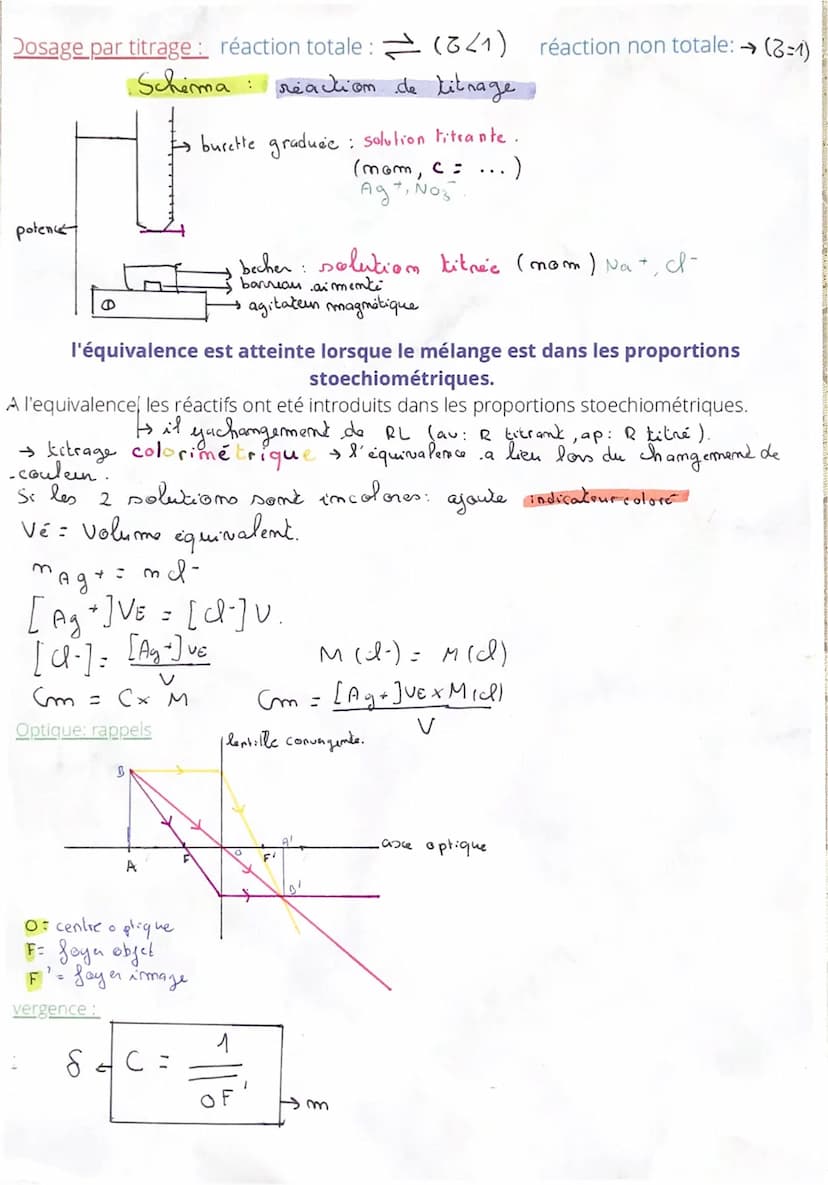 Dosage par titrage : réaction totale : ⇌ (τ<1) réaction non totale: → (τ=1)
Schéma : réaction de titrage
→ burette graduée : solution titrante.
(nom, c = ...)
Ag+, NO3-
potence
becher : solution titrée (nom) Na+, Cl-
barreau aimenté
agitateur magnétique
l'équivalence est atteinte lorsque le mélange est dans les proportions
stoechiométriques.
A l'equivalence, les réactifs ont eté introduits dans les proportions stoechiométriques.
↳ il y a changement de RL (av: R titrant, ap: R titré).
→ titrage colorimétrique → l'équivalence a lieu lors du changement de
couleur.
Si les 2 solutions sont incolores: ajoute indicateur coloré
Vé = Volume équivalent.
nAg+ = nCl-
[Ag+]VE = [Cl-]V.
[Cl-] = [Ag+]VE / V
M(Cl-) = M(Cl)
Cm = C x M
Cm = [Ag+]VE x M(Cl) / V
Optique: rappels
lentille convergente.
B
A F O F' A' axe optique
B'
O = centre optique
F = foyer objet
F' = foyer image
vergence :
δ ← C = 1 / OF' → m